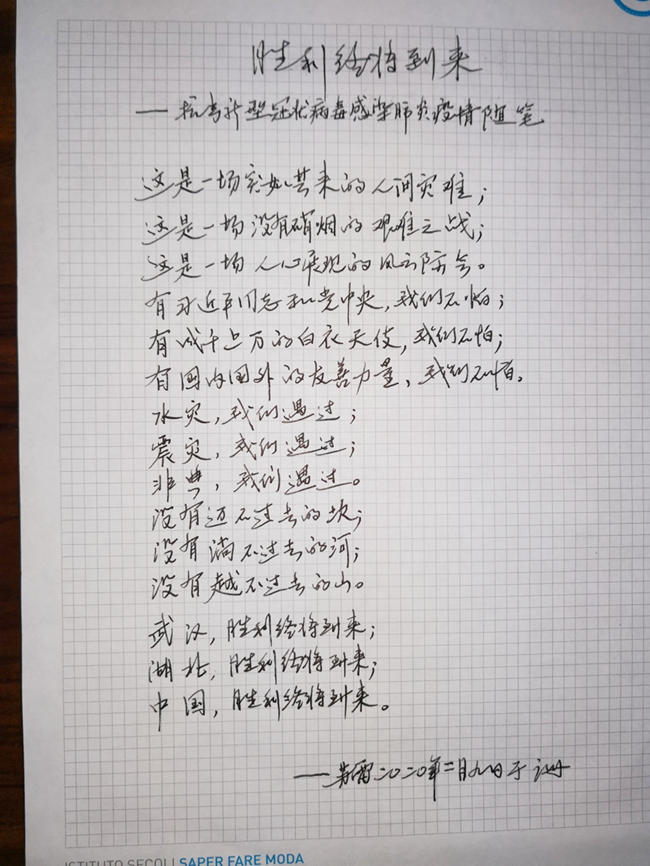 胜利终将到来
——抗击新型冠状病毒感染肺炎疫情随笔
这是一场突如其来的人间灾难；
这是一场没有硝烟的艰难之战；
这是一场人心展现的风云际会。
有习近平同志和党中央，我们不怕；
有成千上万的白衣天使，我们不怕；
有国内国外的友善力量，我们不怕。
水灾，我们遇过；
震灾，我们遇过；
非典，我们遇过。
没有迈不过去的坎；
没有淌不过去的河；
没有越不过去的山。
武汉，胜利终将到来；
湖北，胜利终将到来；
中国，胜利终将到来。
——二〇二〇年二月九日于
ISTITUTO SECOLI SAPER FARE MODA